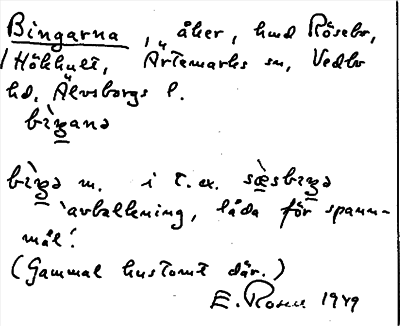 Bingarna, åker, hmd Rösebo,
Hökhult, Ärtemarks sn, Vedbo
hd, Älvsborgs l.
bìŋana
bìŋə m. i t.ex. sæ̀sbiŋə
'avbalkning, låda för spann-
mål'.
(Gammal hustomt där.)
E. Rosen 1949